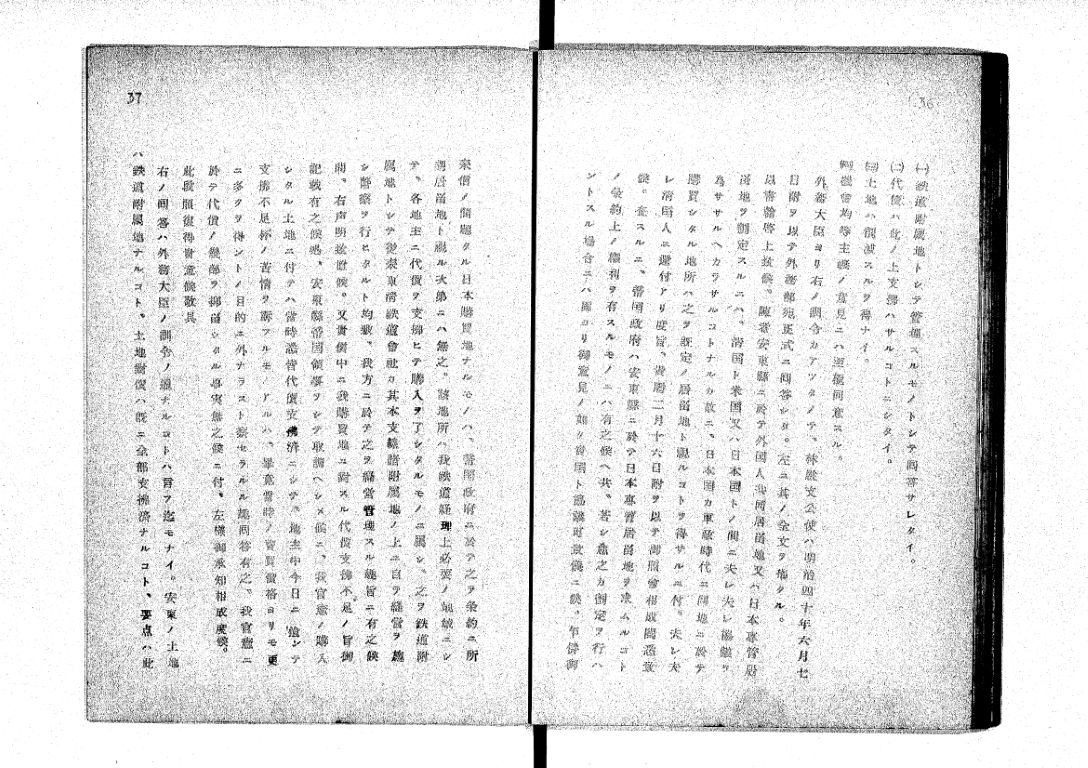 36
㈠鉄道附属地トシテ管理スルモノトシテ回答サレタイ。
㈡代償ハ此ノ上支溿ハサルコトニシタイ。
㈢土地ハ削減スルヲ得ナイ。
㈣機会均等主義ノ意見ニハ亜権同意スル。
外務大臣ヨリ右ノ訓令カアツタノテ、林駐支公使ハ明治四十年六月七
日附ヲ以テ外務部宛正式ニ回答シタ。左ニ其ノ全文ヲ掲クル。
以書翰啓上致候。陳者安東県ニ於テ外国人共同居留地又ハ日本専管居
留地ヲ劃定スルニハ、清国ト米国又ハ日本国トノ間ニ夫レ夫レ協議ヲ
為ササルヘカラサルコトナルカ故ニ、日本国カ軍政時代ニ同地ニ於テ
購買シタル地所ハ之ヲ既定ノ居留地ト認ルコトヲ得サルニ付、夫レ夫
レ清国人ニ還付アリ度旨、貴暦二月十六日附ヲ以テ御照会相成閲悉致
候。査スルニ、帝国政府ハ安東県ニ於テ日本専管居留地ヲ求ムルコト
ノ条約上ノ権利ヲ有スルモノニハ有之候ヘ共、若シ愈之カ劃定ヲ行ハ
ントスル場合ニハ固ヨリ御意見ノ如ク貴国ト協議可致儀ニ候。乍併御
37
来信ノ問題タル日本購買地ナルモノハ、帝国政府ニ於テ之ヲ条約ニ所
謂居留地ト認ル次第ニハ無之。該地所ハ我鉄道経理上必要ノ地域ニシ
テ、各地主ニ代償ヲ支拂ヒテ購入ヲ了シタルモノニ属シ、之ヲ鉄道附
属地トシテ従来東清鉄道会社カ其本支線諸附属地ノ上ニ自ラ経営ヲ施
シ警察ヲ行ヒタルト均敷、我方ニ於テ之ヲ経営管理スル趣旨ニ有之候
間、右声明致置候。又貴信中ニ我購買地ニ対スル代償支拂不足ノ旨御
記載有之候処、安東県帝国領事ヲシテ取調ヘシメ候ニ、我官憲ノ購入
シタル土地ニ付テハ当時悉皆代償支拂済ニシテ、地主中今日ニ　シテ
支拂不足杯ノ苦情ヲ訴フルモノアルハ、畢竟当時ノ売買価格ヨリモ更
ニ多クヲ得ントノ目的ニ外ナラスト察セラルル趣回答有之。我官憲ニ
於テ代償ノ幾部ヲ抑留シタル事実無之候ニ付、左様御承知相成度候。
此段照復得貴意候敬具
右ノ回答ハ外務大臣ノ訓令ノ通ナルコトハ言フ迄モナイ。安東ノ土地
ハ鉄道附属地ナルコト、土地対償ハ既ニ全部支拂済ナルコト、要点ハ此